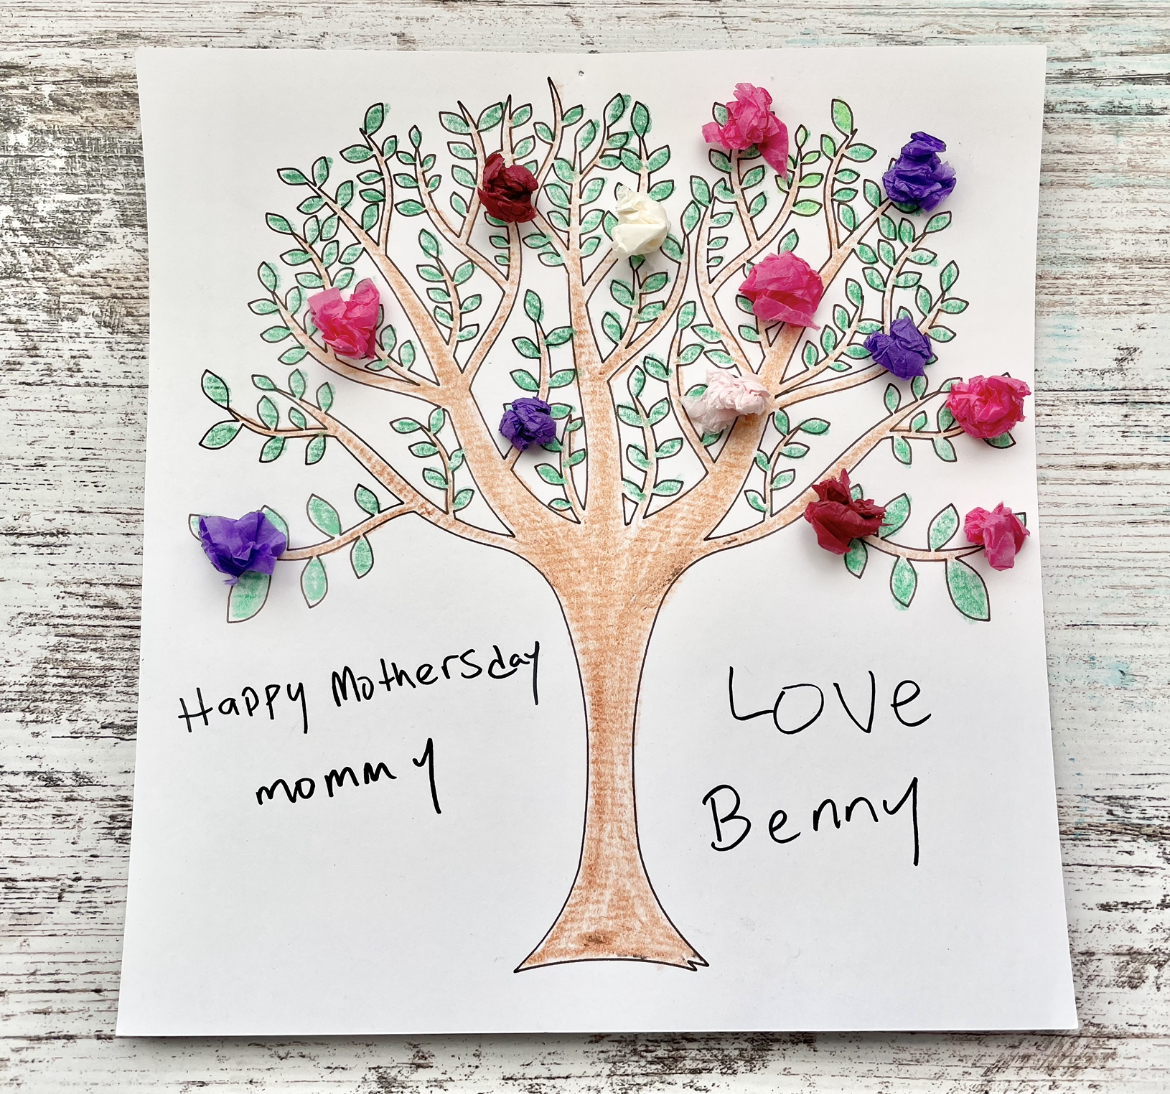 Happy Mothersday
mommy
Love
Benny